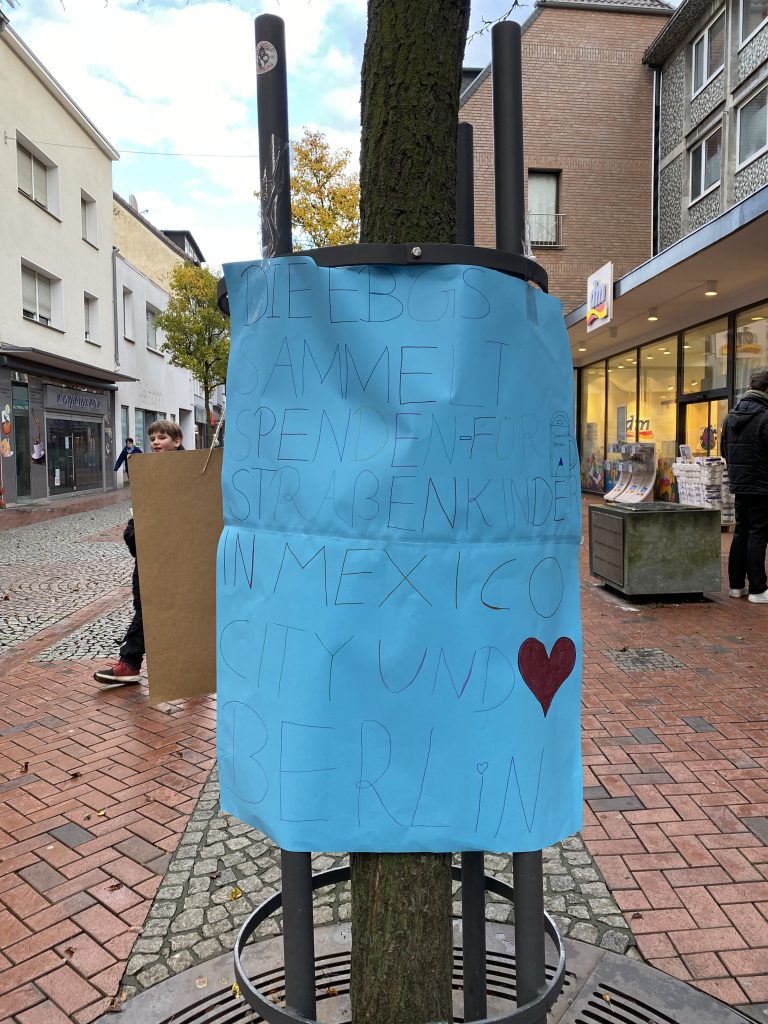 DIE EBGS
SAMMELT
SPENDEN-FÜR
STRAßENKINDE
IN MEXICO
CITY UND
BERLiN
dm
dm